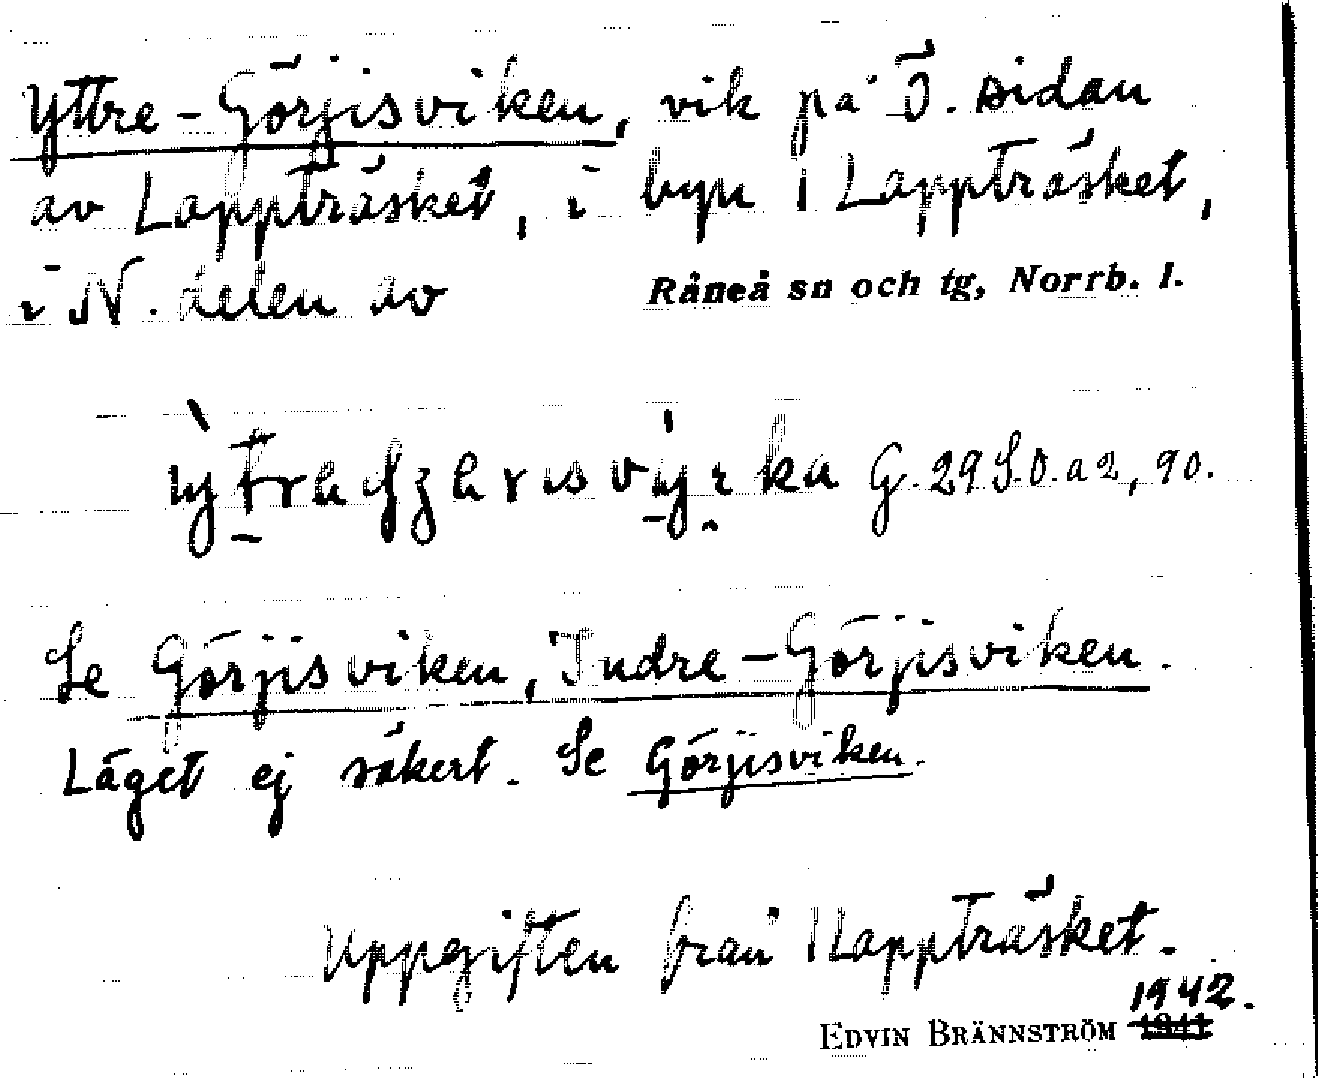 Yttre-Görjisviken, vik på Ö. sidan
av Lappträsket, i byn 1 Lappträsket,
i N. delen av Råneå sn och tg, Norrb. l.
G. 29 S.O. a 2, 90.
Se Görjisviken, Indre-Görjisviken.
Läget ej säkert. Se Görjisviken.
Uppgiften från 1 Lappträsket.
1942.
EDVIN BRÄNNSTRÖM 1941